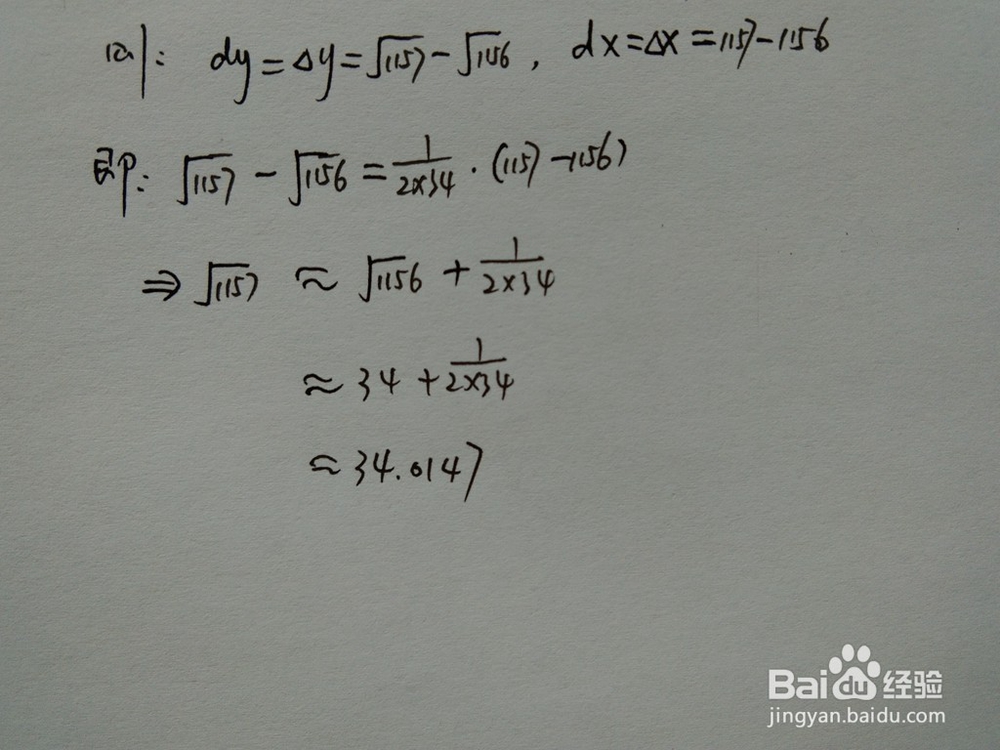 则: dy=Δy=√1157-√1156, dx=Δx=1157-1156
即: √1157-√1156=1/(2×34)·(1157-1156)
⇒√1157≈√1156+1/(2×34)
≈34+1/(2×34)
≈34.0147
Baidu经验
jingyan.baidu.com